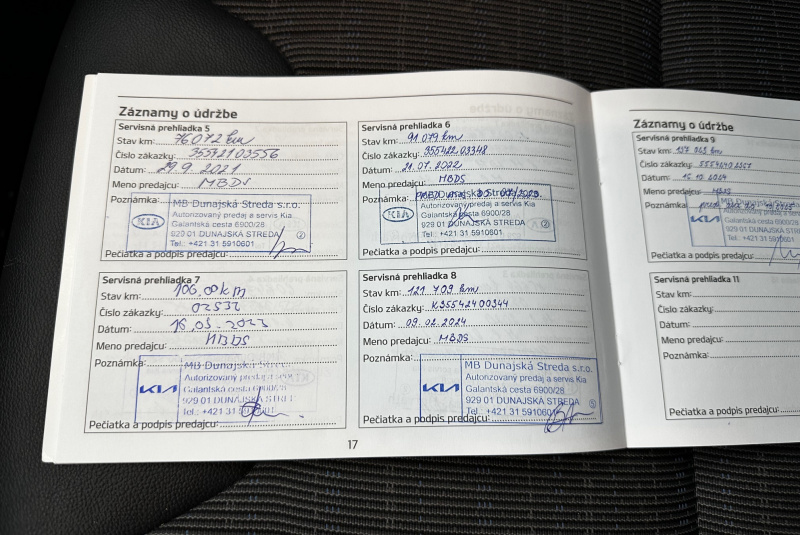 Záznamy o údržbe
Servisná prehliadka 5
Stav km: 76 072 km
Číslo zákazky: 35572103556
Dátum: 29.9.2021
Meno predajcu: MBDS
Poznámka:
MB Dunajská Streda s.r.o.
Autorizovaný predaj a servis Kia
Galantská cesta 6900/28
929 01 DUNAJSKÁ STREDA
Tel.: +421 31 5910601
KIA
2
Pečiatka a podpis predajcu:
Servisná prehliadka 6
Stav km: 91 079 km
Číslo zákazky: 355422 03348
Dátum: 21.07.2022
Meno predajcu: MBDS
Poznámka:
MB Dunajská Streda s.r.o.
Autorizovaný predaj a servis Kia
Galantská cesta 6900/28
929 01 DUNAJSKÁ STREDA
Tel.: +421 31 5910601
KIA
2
Pečiatka a podpis predajcu:
Servisná prehliadka 7
Stav km: 106.00 km
Číslo zákazky: 02532
Dátum: 16.05.2023
Meno predajcu: MBDS
Poznámka:
MB Dunajská Stre
Autorizovaný predaj a
Galantská cesta 6900/28
929 01 DUNAJSKÁ
Tel.: +421 31
KIA
Pečiatka a podpis predajcu:
Servisná prehliadka 8
Stav km: 121 709 km
Číslo zákazky: K35542400344
Dátum: 09.02.2024
Meno predajcu: MBDS
Poznámka:
MB Dunajská Streda s.r.o.
Autorizovaný predaj a servis Kia
Galantská cesta 6900/28
929 01 DUNAJSKÁ STREDA
Tel.: +421 31 5910601
KIA
5
Pečiatka a podpis predajcu:
17
Záznamy o údržbe
Servisná prehliadka 9
Stav km:
Číslo zákazky:
Dátum: 16.10.2024
Meno predajcu: MBDS
Poznámka:
MB Dunajská Stred
Autorizovaný predaj a se
Galantská cesta 6900/28
929 01 DUNAJSKÁ S
Tel.: +421 31 5910
KIA
Pečiatka a podpis predajcu:
Servisná prehliadka 11
Stav km:
Číslo zákazky:
Dátum:
Meno predajcu:
Poznámka:
Pečiatka a podpis predajcu: